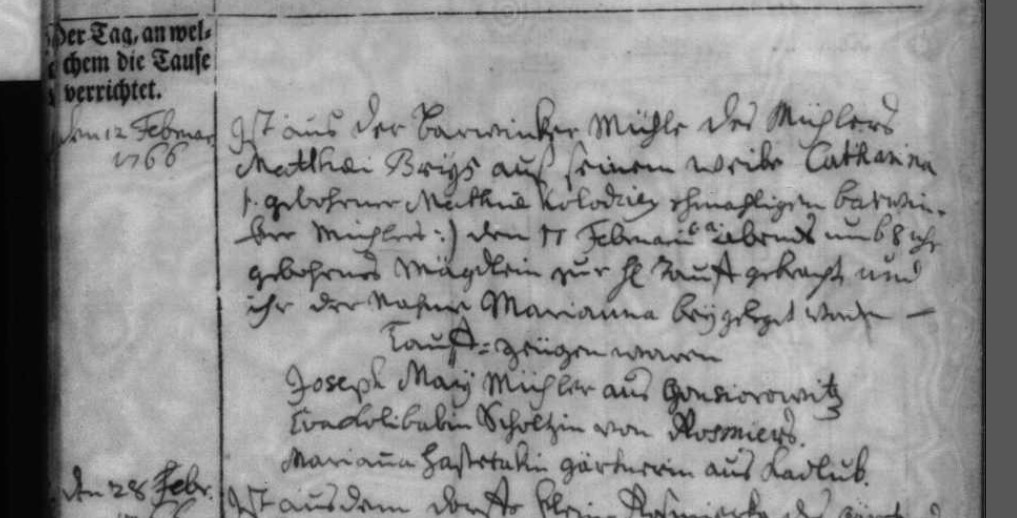 Der Tag, an wel-
chem die Taufe
verrichtet.
den 12 Februar
1766
Ist aus der Barwinker Mühle des Mühlers
Mathaei Brÿs auß seinem weibe Catharina
gebohrner Mathus Kolodziey ehmahligen barwin-
ker Mühlers :) den 11 Februarii abends umb 8 uhr
gebohrnes Mägdlein zur hl Tauff gebracht und
ihr der Nahme Marianna beÿgeleget worden —
Tauff-zeügen waren
Joseph Maÿ Mühler aus Gonsiorowitz
Scholtzin von Rosmierz.
Mariana gärtnerin aus Kadlub.
den 28 Febr.
Ist aus dem dorffe klein